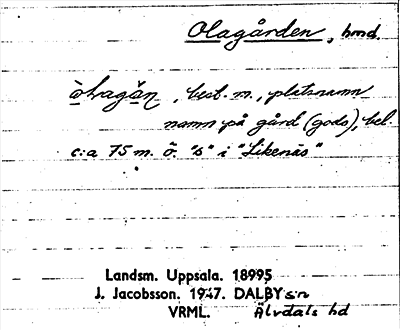 Olagården, hmd.
òlagăn, best. m., platsnamn
namn på gård (gods), bel.
c:a 75 m. ö. "s" i "Likenäs"
Landsm. Uppsala. 18995
J. Jacobsson. 1947. DALBY sn
VRML. Älvdals hd